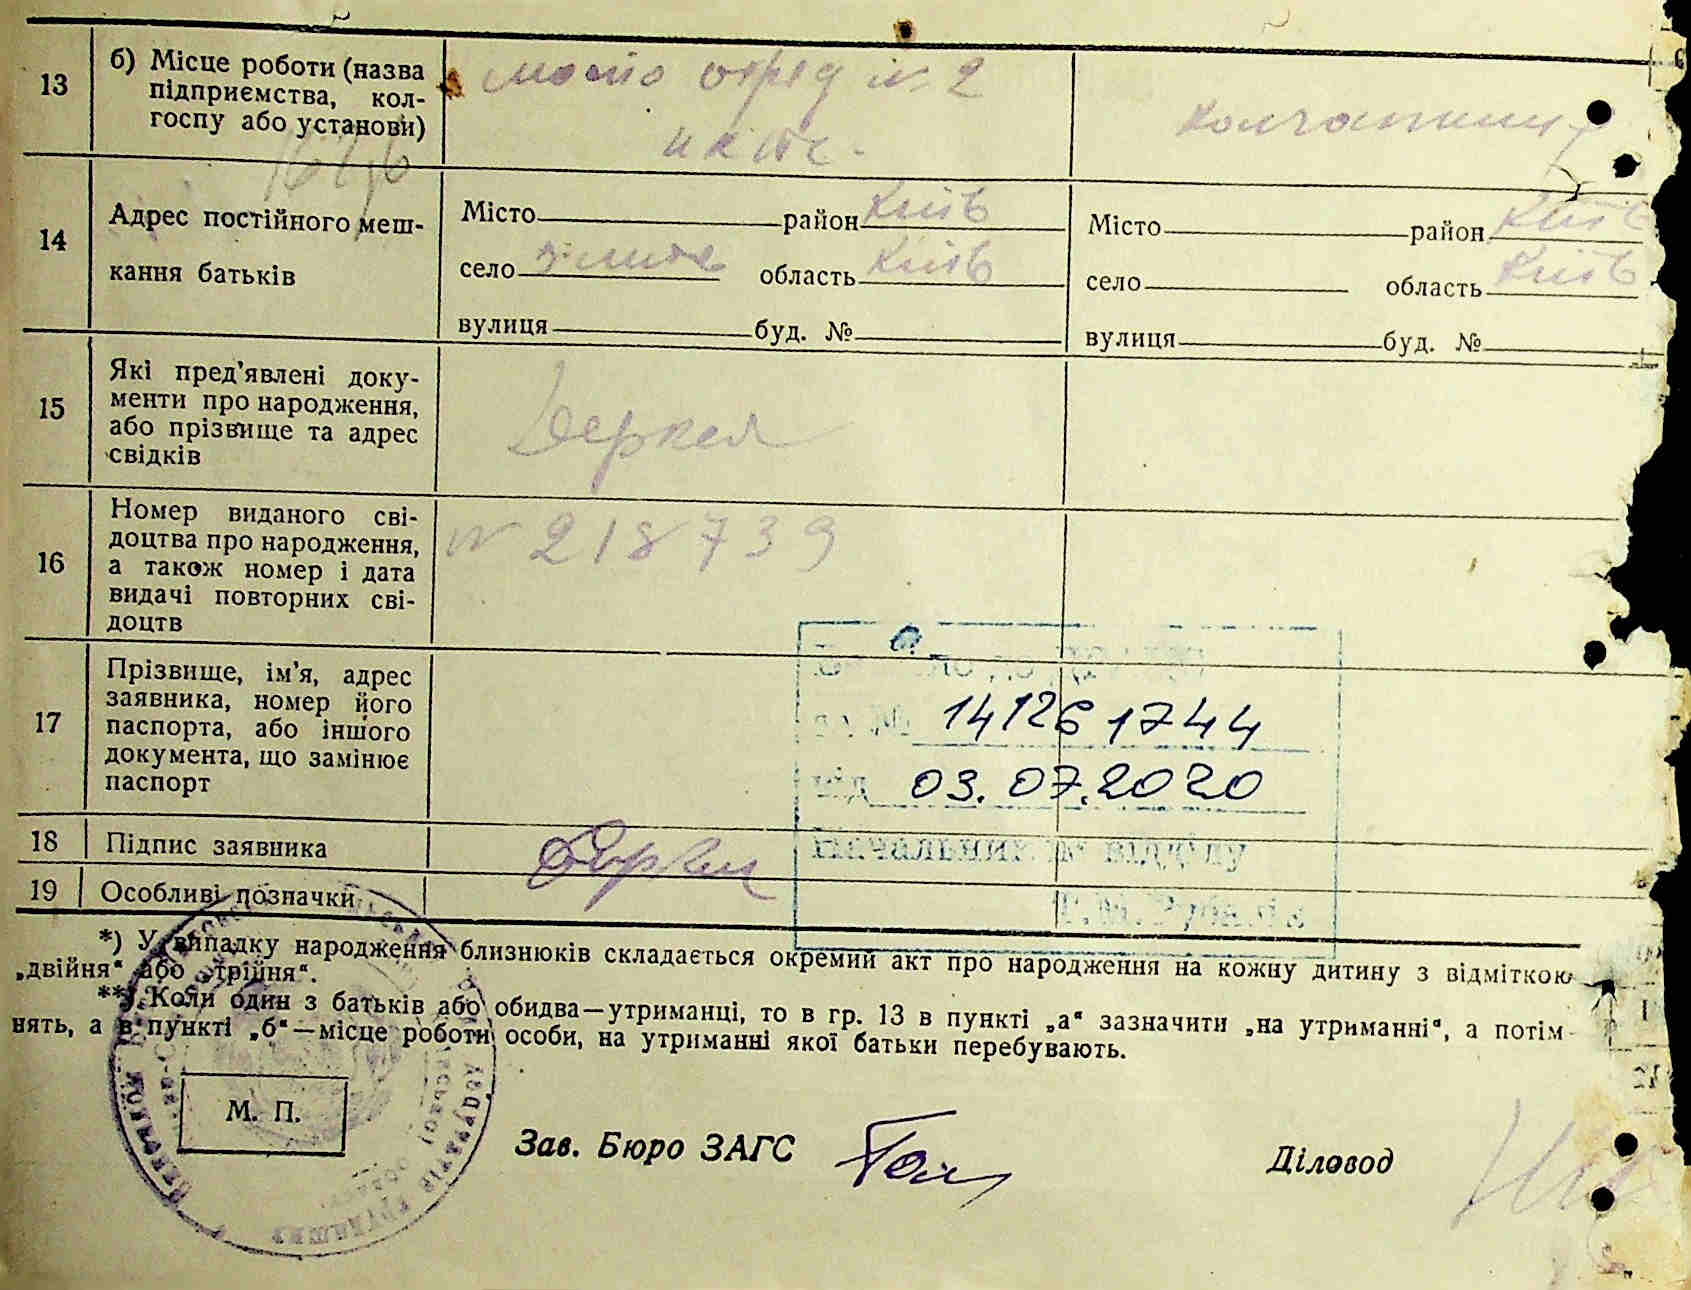 13
б) Місце роботи (назва
підприємства, кол-
госпу або установи)
мосто отряд № 2
14
Адрес постійного меш-
кання батьків
Місто район Київ
село область Київ
вулиця буд. №
Місто район Київ
село область Київ
вулиця буд. №
15
Які пред'явлені доку-
менти про народження,
або прізвище та адрес
свідків
16
Номер виданого сві-
доцтва про народження,
а також номер і дата
видачі повторних сві-
доцтв
№ 218739
17
Прізвище, ім'я, адрес
заявника, номер його
паспорта, або іншого
документа, що замінює
паспорт
№ 141261744
від 03.07.2020
Начальник відділу
18 Підпис заявника
19 Особливі позначки
*) У випадку народження близнюків складається окремий акт про народження на кожну дитину з відміткою
„двійня“ або „трійня“.
**) Коли один з батьків або обидва—утриманці, то в гр. 13 в пункті „а“ зазначити „на утриманні“, а потім
нять, а в пункті „б“—місце роботи особи, на утриманні якої батьки перебувають.
М. П.
Зав. Бюро ЗАГС
Діловод